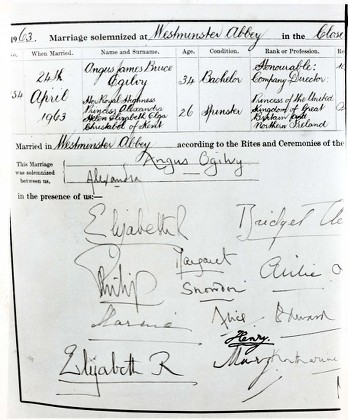 1963. Marriage solemnized at Westminster Abbey in the Close
When Married. Name and Surname. Age. Condition. Rank or Profession.
24th Angus James Bruce Ogilvy 34 Bachelor Honourable: Company Director.
54 April 1963 Her Royal Highness Princess Alexandra Helen Elizabeth Olga Christabel of Kent 26 Spinster Princess of the United Kingdom of Great Britain and Northern Ireland
Married in Westminster Abbey according to the Rites and Ceremonies of the
This Marriage was solemnized between us, Angus Ogilvy
Alexandra
in the presence of us:—
Elizabeth R Bridget
Philip Margaret Airlie
Snowdon
Marina Alice Edward
Henry.
Elizabeth R Mary Katharine